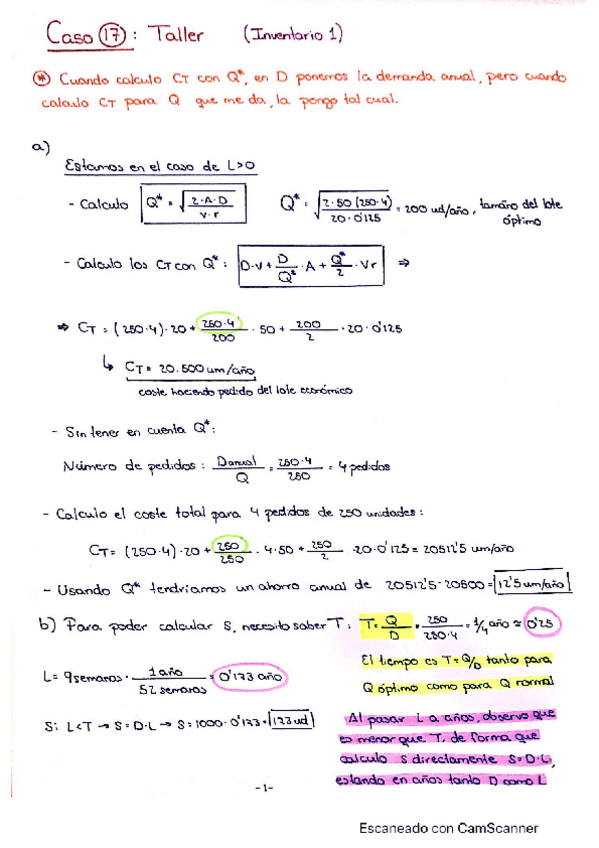 Caso 17: Taller (Inventario 1)
* Cuando calculo CT con Q*, en D ponemos la demanda anual, pero cuando
calculo CT para Q que me da, la pongo tal cual.
a)
Estamos en el caso de L>0
- Calculo Q* = √(2·A·D / v·r) Q* = √(2·50(250·4) / 20·0'125) = 200 ud/año, tamaño del lote
óptimo
- Calculo los CT con Q*: D·v + D/Q* · A + Q*/2 · Vr ⇒
⇒ CT = (250·4)·20 + 250·4/200 · 50 + 200/2 · 20·0'125
↳ CT = 20.500 um/año
coste haciendo pedido del lote económico
- Sin tener en cuenta Q*:
Número de pedidos: Danual/Q = 250·4/250 = 4 pedidos
- Calculo el coste total para 4 pedidos de 250 unidades:
CT = (250·4)·20 + 250/250 · 4·50 + 250/2 · 20·0'125 = 20512'5 um/año
- Usando Q* tendríamos un ahorro anual de 20512'5-20500 = 12'5 um/año
b) Para poder calcular S, necesito saber T: T = Q/D = 250/250·4 = 1/4 año ≈ 0'25
El tiempo es T=Q/D tanto para
Q óptimo como para Q normal
L = 9 semanas · 1 año/52 semanas = 0'173 año
Si L<T → S = D·L → S = 1000·0'173 = 173 ud
Al pasar L a años, observo que
es menor que T, de forma que
calculo S directamente S=D·L,
estando en años tanto D como L
-1-
Escaneado con CamScanner